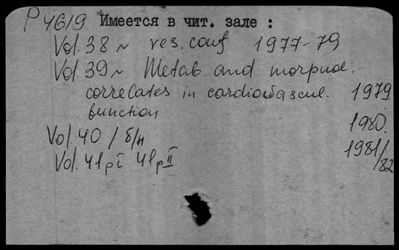 P 4619 Имеется в чит. зале :
Vol. 38 ~ res. conf 1977-79
Vol. 39 ~ Metab. and morphol.
correlates in cardiovascul. 1979
function
Vol. 40 / б/н 1980.
Vol. 41 pI 41 pII 1981/82